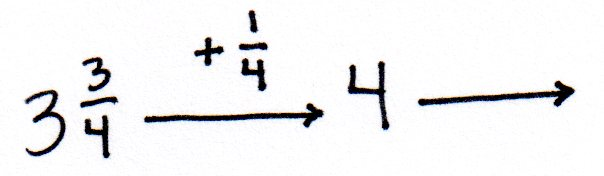 3 3/4 + 1/4 → 4 →